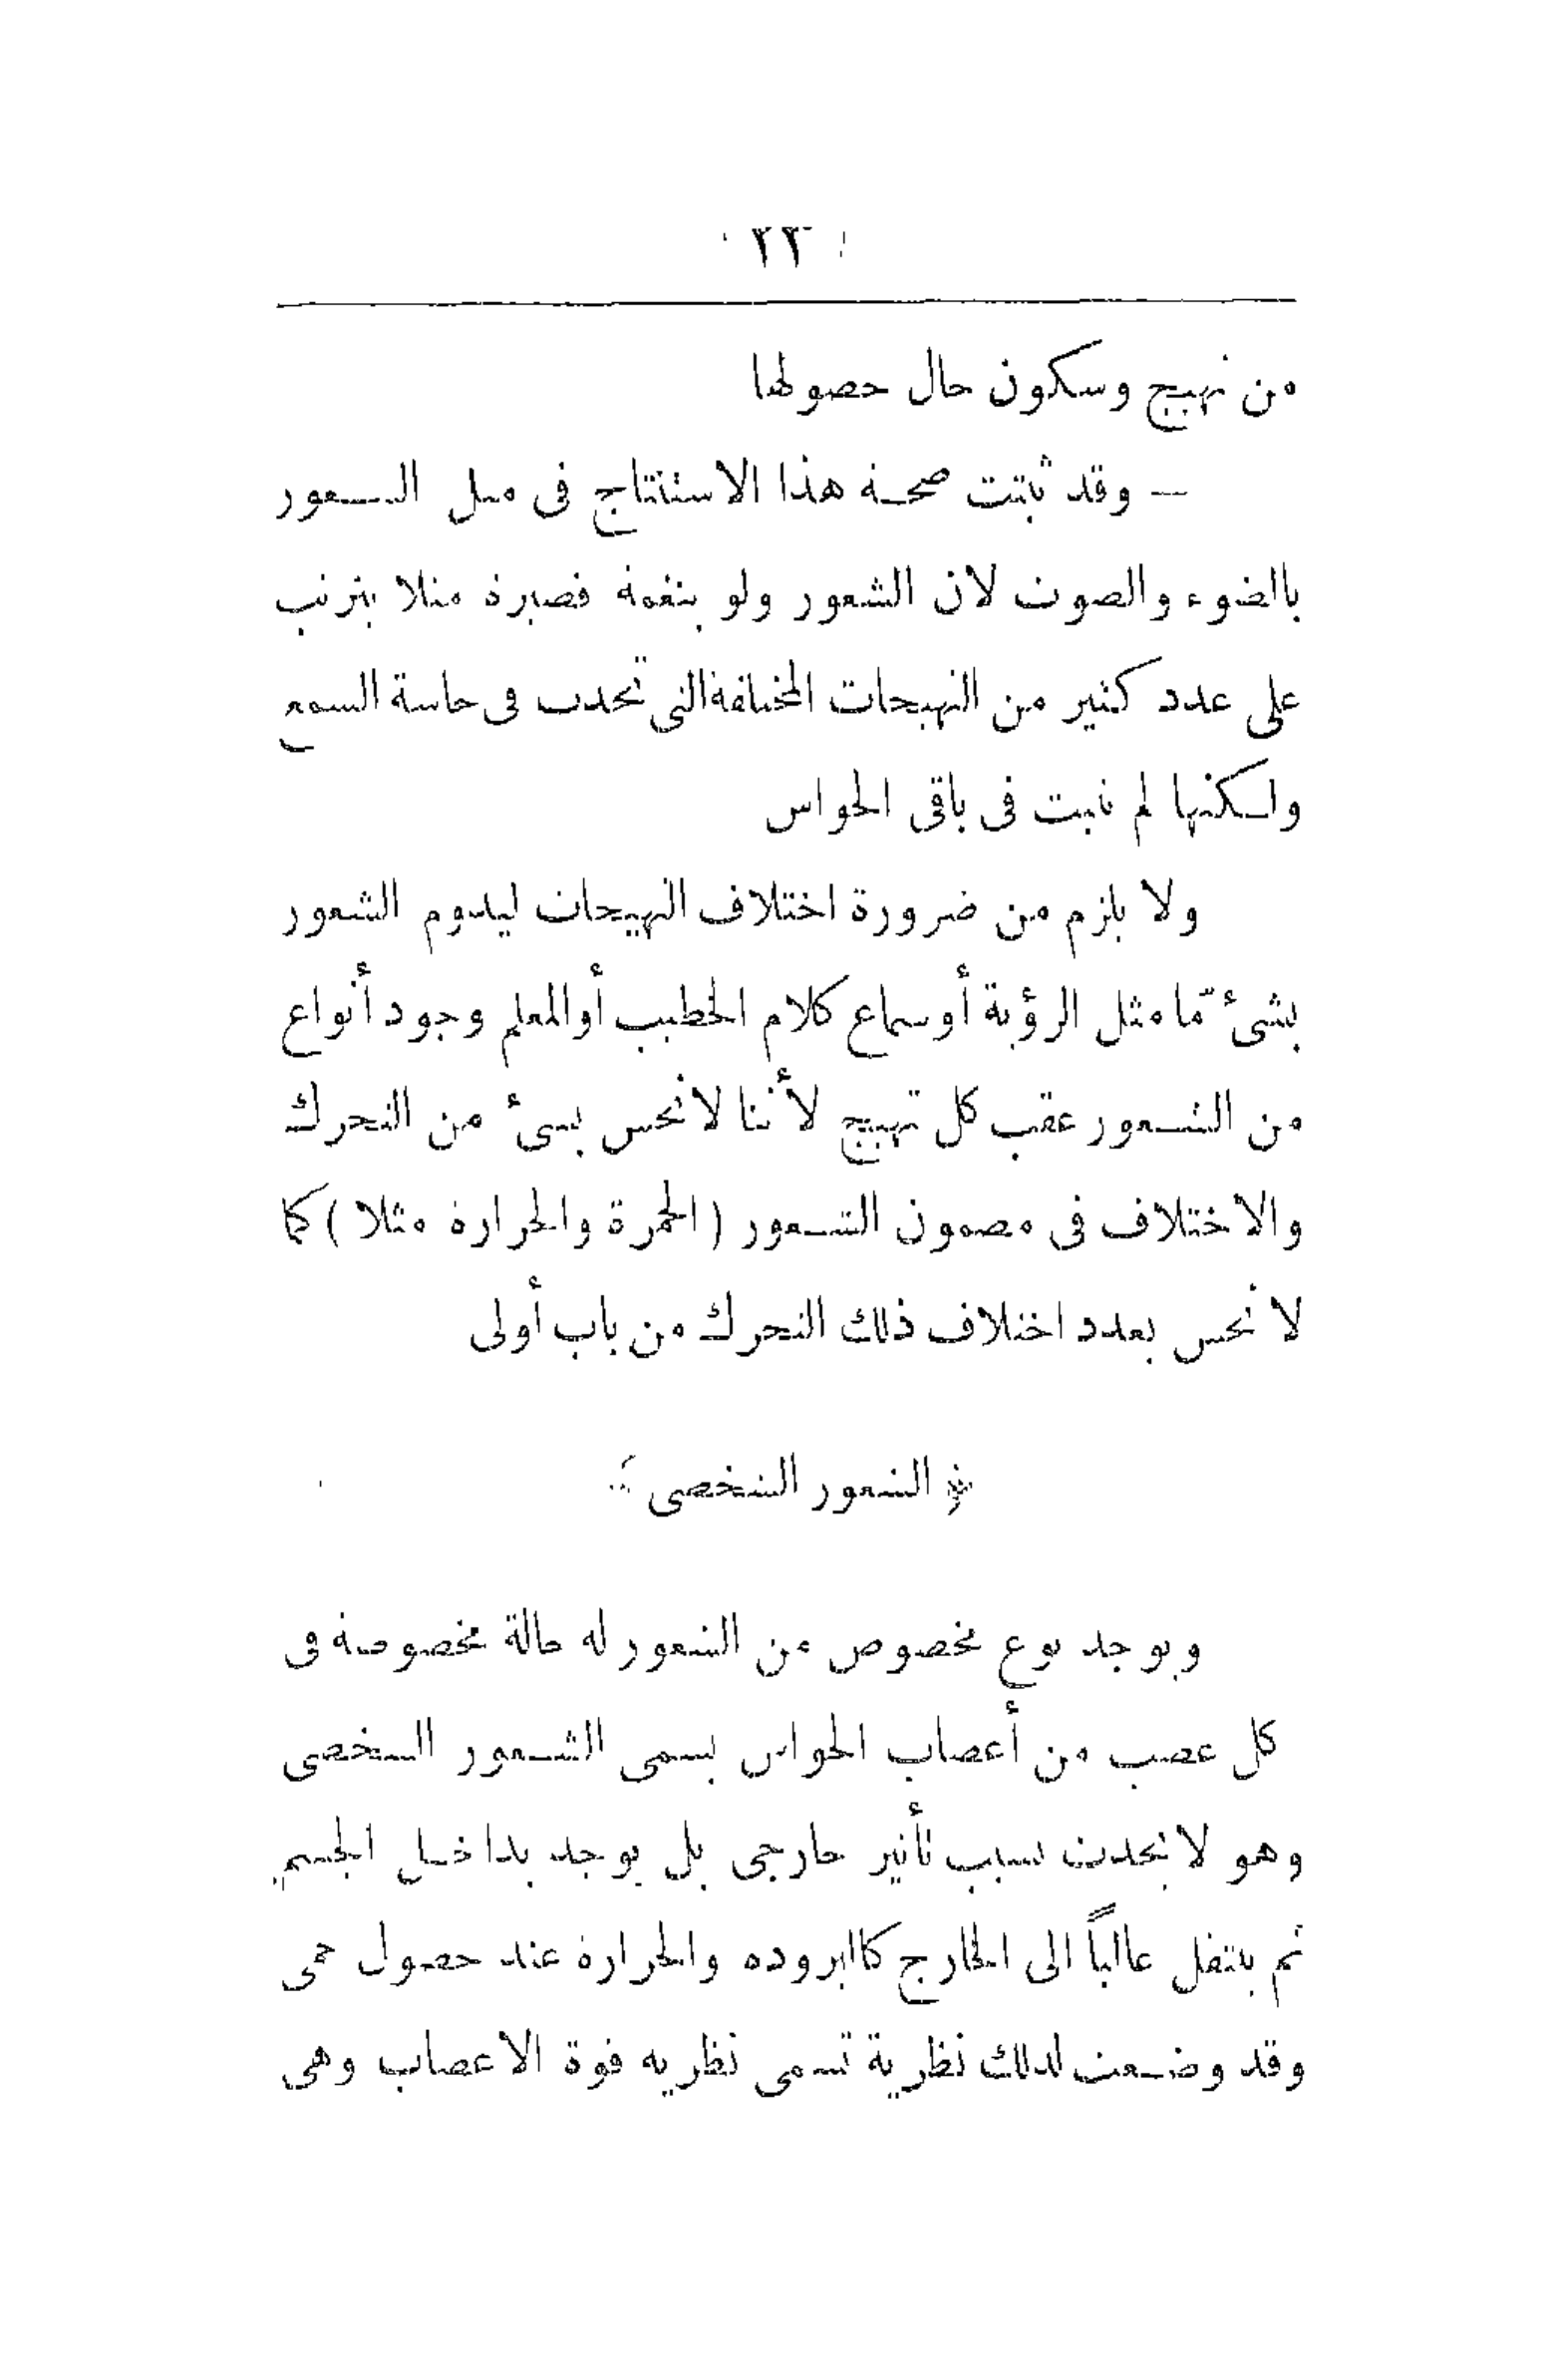 ٢٣
من تهييج وسكون حال حصولها
— وقد ثبتت صحة هذا الاستنتاج فى مثل الشعور
بالضوء والصوت لان الشعور ولو بنغمة قصيرة مثلا يترتب
على عدد كثير من التهيجات المختلفة التى تحدث فى حاسة السمع
ولكنها لم تثبت فى باقى الحواس
ولا يلزم من ضرورة اختلاف التهيجات ليدوم الشعور
بشئ مّا مثل الرؤية أو سماع كلام الخطيب أو المعلم وجود أنواع
من الشعور عقب كل تهييج لأننا لا نحس بشئ من التحرك
والاختلاف فى مضمون الشعور (الحمرة والحرارة مثلا) كما
لا نحس بعدد اختلاف ذلك التحرك من باب أولى
﴿ الشعور الشخصى ﴾
ويوجد نوع مخصوص من الشعور له حالة مخصوصة فى
كل عصب من أعصاب الحواس يسمى الشعور الشخصى
وهو لا يحدث بسبب تأثير خارجى بل يوجد بداخل الجسم
ثم ينتقل غالباً الى الخارج كالبرودة والحرارة عند حصول حمى
وقد وضعت لذلك نظرية تسمى نظرية قوة الاعصاب وهى